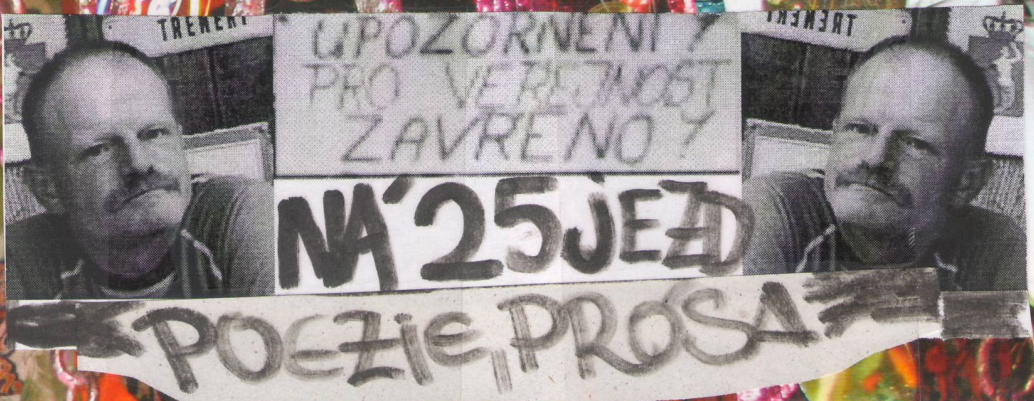 TRENERT
TRENERT
UPOZORNĚNÍ?
PRO VEŘEJNOST
ZAVŘENO?
NÁ'25JEZD
POEZIE, PROSA